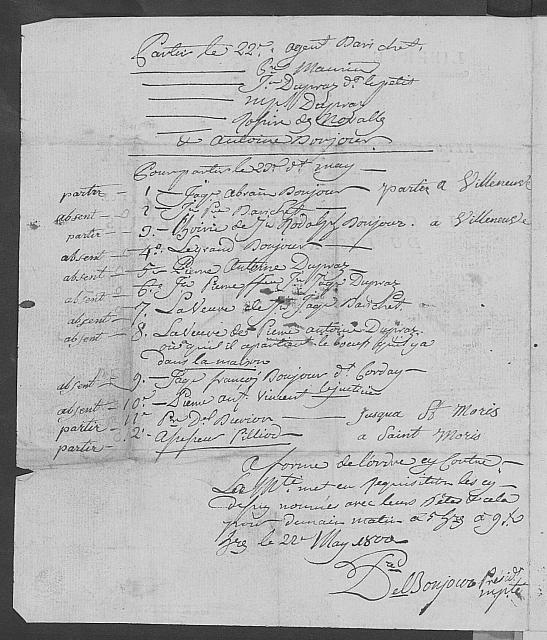 Partis le 22e. agent Barichet,
Maurin
Je Dupraz dt. le petit
mpll Dupraz
de Novalle
& Antoine Bonjour
Pour partir le 23e dt may —
partir — 1 — Jaqe Abram Bonjour partir a Villeneuve
absent — 2 — Je Pre Barichet
partir — 3 — Hoirie de Je Rodolph Bonjour. a Villeneuve
absent — 4e. Legrand Bonjour
absent — 5e — Pierre Antoine Dupraz
absent — 6e Je Pierre ffeu Je Jaqe Dupraz
absent — 7. La Veuve de Je Jaqe Barichet.
absent — 8. La Veuve de Pierre Antoine Dupraz
ou quil il apartient le boeuf quil ya
dans la maison
absent — 9. — Jaqe françoi Bonjour dt. Corday —
absent — 10e — Pierre ant. Vincent
partir — 11e Pre Dd. Burion — Jusqua St Moris
partir — 12 — Pilliod — a Saint Moris
A forme de l'ordre cy Contre —
La Mte. met en requisition les cy
deßus nommés avec leurs bêtes & cela
pour demain matin à 5 hres à
hres le 22e May 1800
Del Bonjour Présidt
mpte